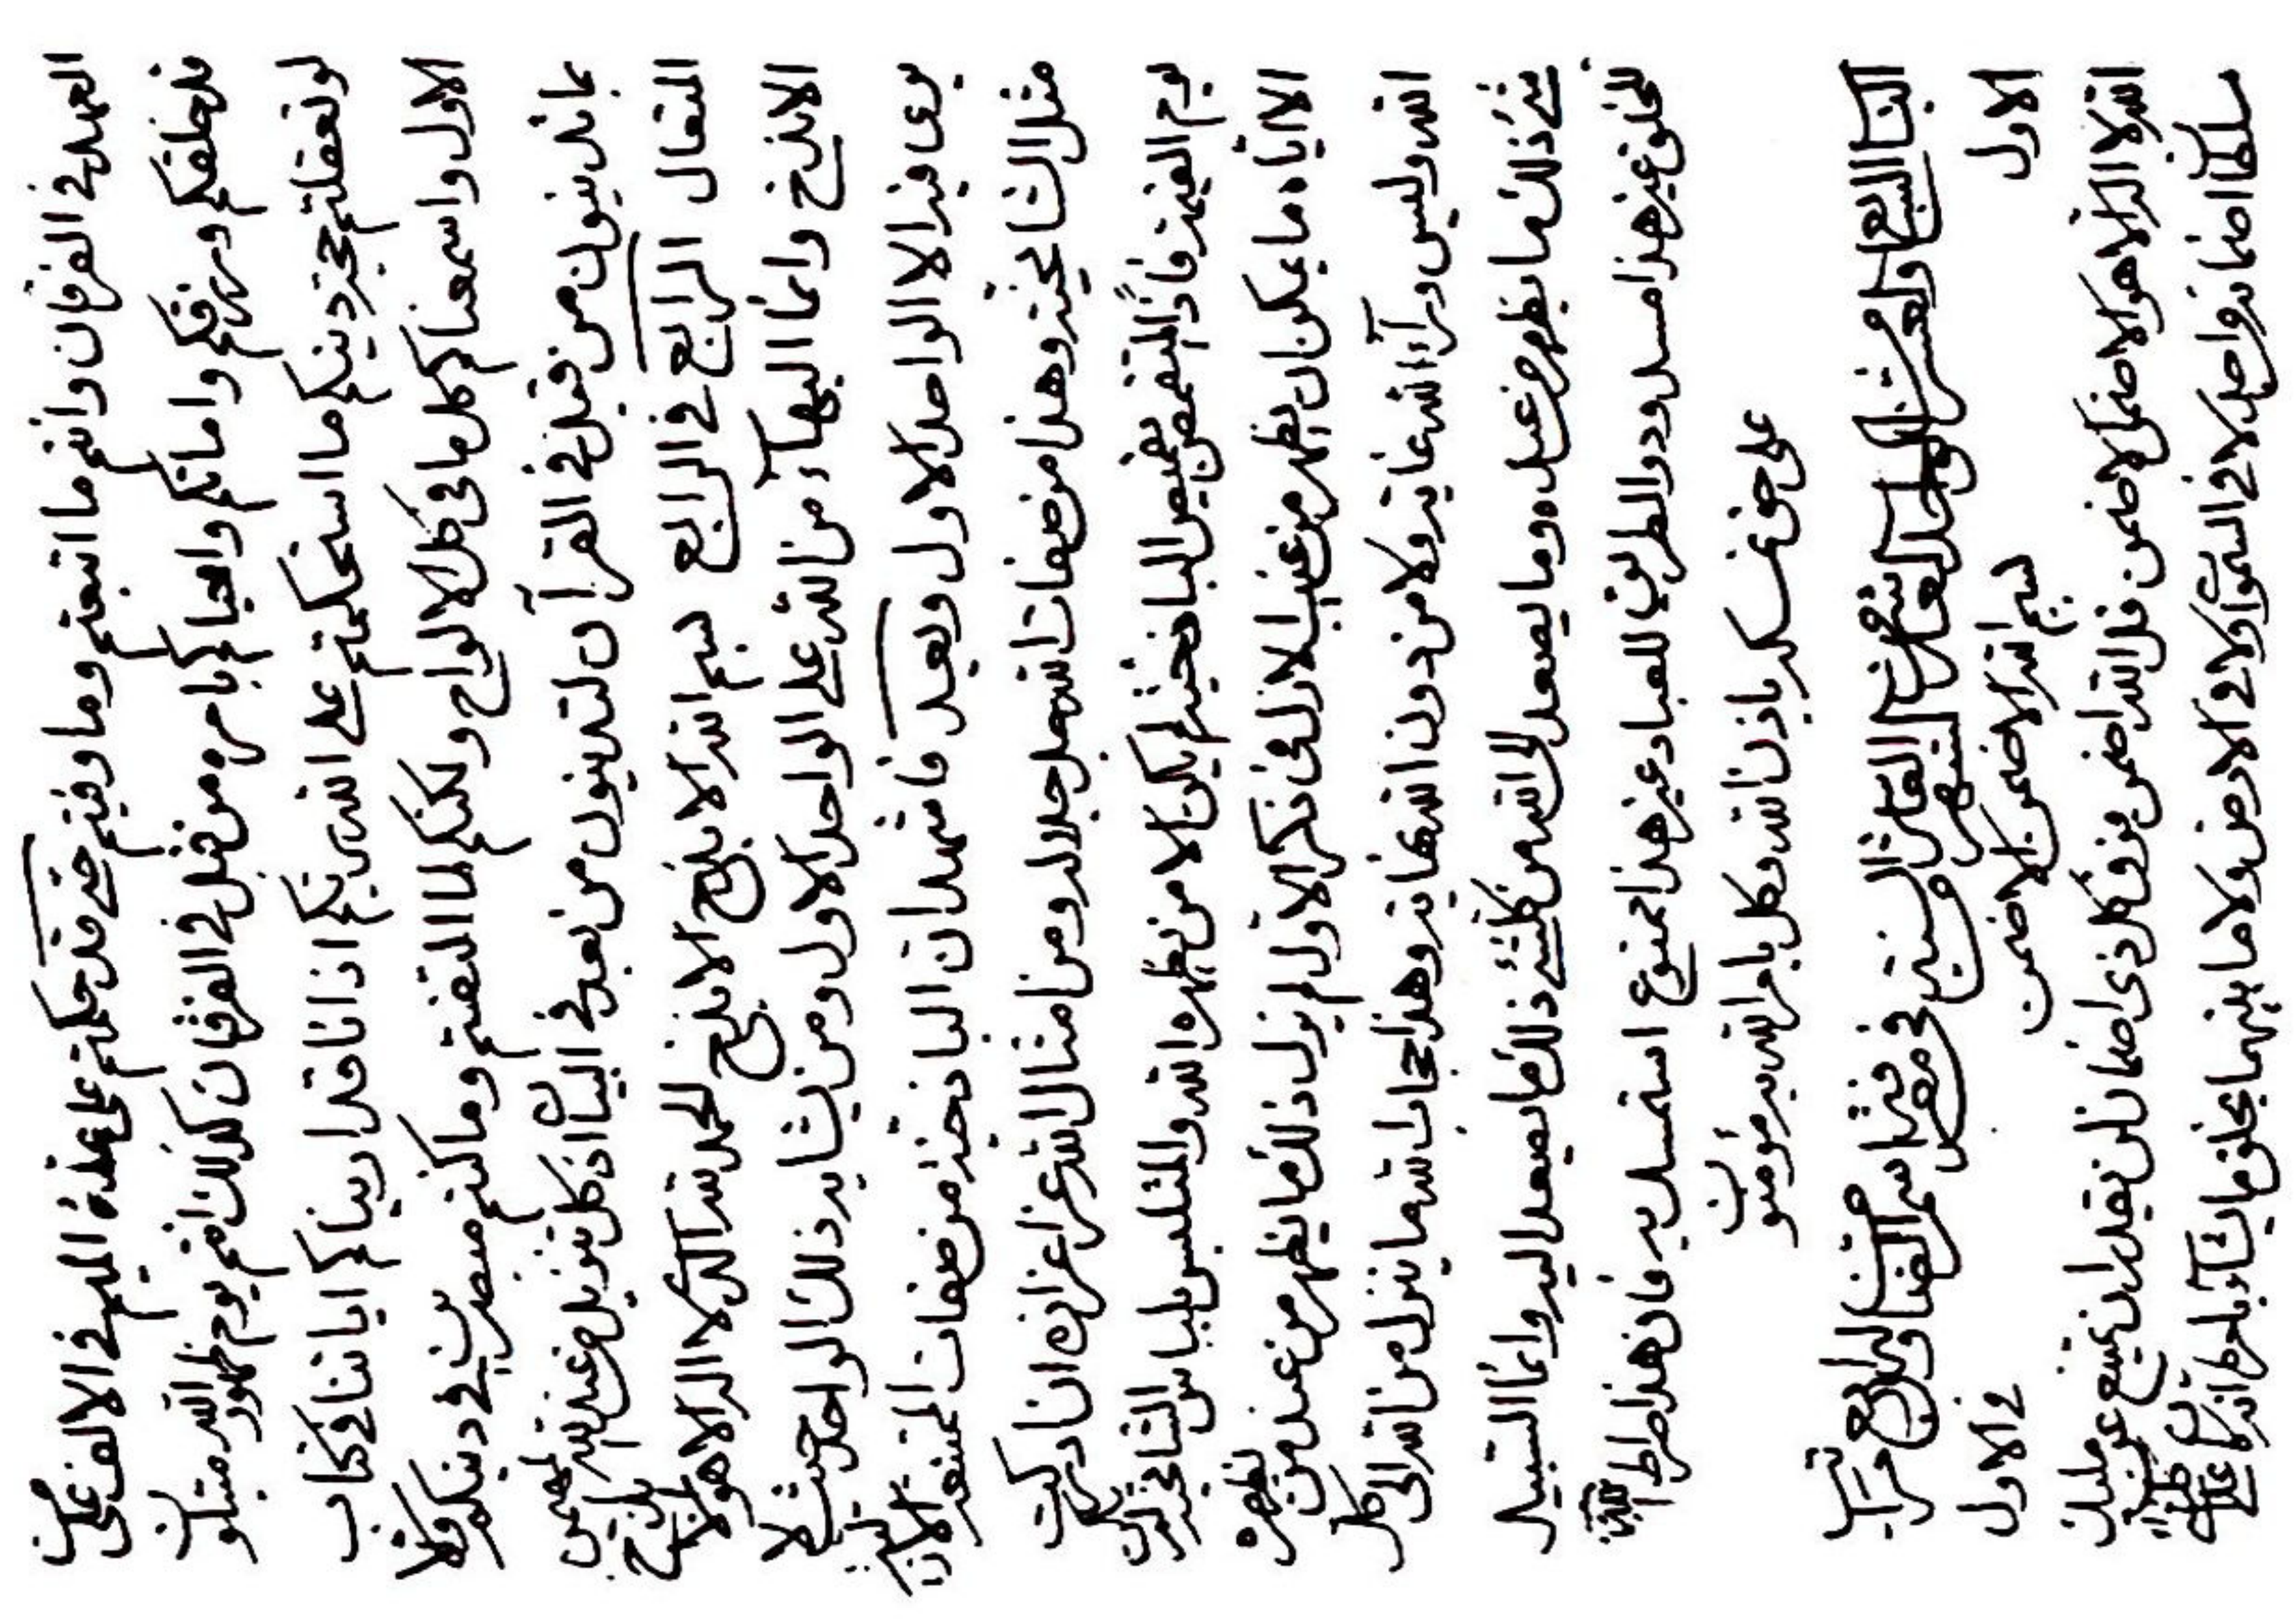 العهد في الفرقان وانتم ما اتبعتم وما وفيتم حتى قد حكمتم على عقدة اليم في الالف على
قد خلقكم ورزقكم واماتكم واحياكم بامره من قبل في الفرقان كذلك انتم يوم ظهور الله مبتلون
لو تعقلتم حجة دينكم ما استحكمتم على الله ربكم اذ انا قد اريناكم اياتنا في كتاب
الاول واسمعناكم كل ما في كل الالواح ولكنكم لما التفتم وما كنتم مبصرين في دينكم
بما تدينون من قبل في القرآن لتدينون من بعد في البيان اذ كل تنزيل من عند الله المهيمن
المتعال الرابع في الرابع بسم الله الابذخ الابذخ الحمد لله الذي لا اله الا هو
الابذخ وانما البهاء من الله على الواحد الاول ومن يشابه ذلك الواحد حيث لا
يرى فيه الا الواحد الاول وبعد فاشهد ان الباذخية من صفات الممتنعة
مثل الشامخية وهذا من صفات الله جل جلاله ومن امثال الله عز اعزازه ان ادركت
يوم القيمة فاذا المتقمص بقميص الباذخية لم يكن الا من يظهره الله والمتلبس بلباس الشامخية
الا اياه ما يمكن ان يظهر من غيب الازل في ذكر الاول لم يزل ذلك ما يظهر من عند من يظهره
الله وليس وراء الله غاية ولا من دون الله نهاية وهذا حجاب الله ما ينزل من الله الى كل
شيء ذلك ما يظهر من عبده وما يصعد الى الله من كلشيء ذلك ما يصعد اليه وانما السبيل
للخلق غير هذا مسدود والطريق للعباد غير هذا ممنوع استمسك به فان هذا صراط الله
على حق في مسكه باذن الله وكل بامر الله به مؤمنون
الباب السابع والعشر من الواحد العاشر من شهر العاشر من السنة في معرفة اسم الضامن وله اربع مراتب
الاول في الاول
بسم الله الاضمن الاضمن
الله لا اله الا هو الاضمن الاضمن قل الله اضمن فوق كل ذي اضمان لن يقدر ان يمتنع عن مليك
سلطان اضمانه من احد لا في السموات ولا في الارض ولا ما بينهما يخلق ما يشاء بامره انه كان على